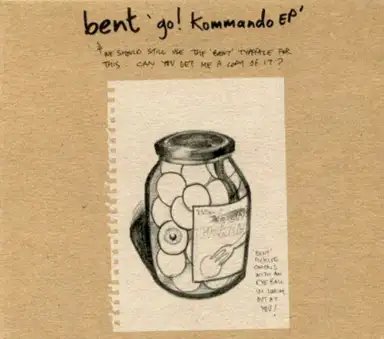 bent 'go! Kommando EP'
WE SHOULD STILL USE THE 'BENT' TYPEFACE FOR
THIS. CAN YOU GET ME A COPY OF IT?
'BENT'
PICKLED
ONIONS
WITH AN
EYE BALL
IN LOOKING
OUT AT
YOU!